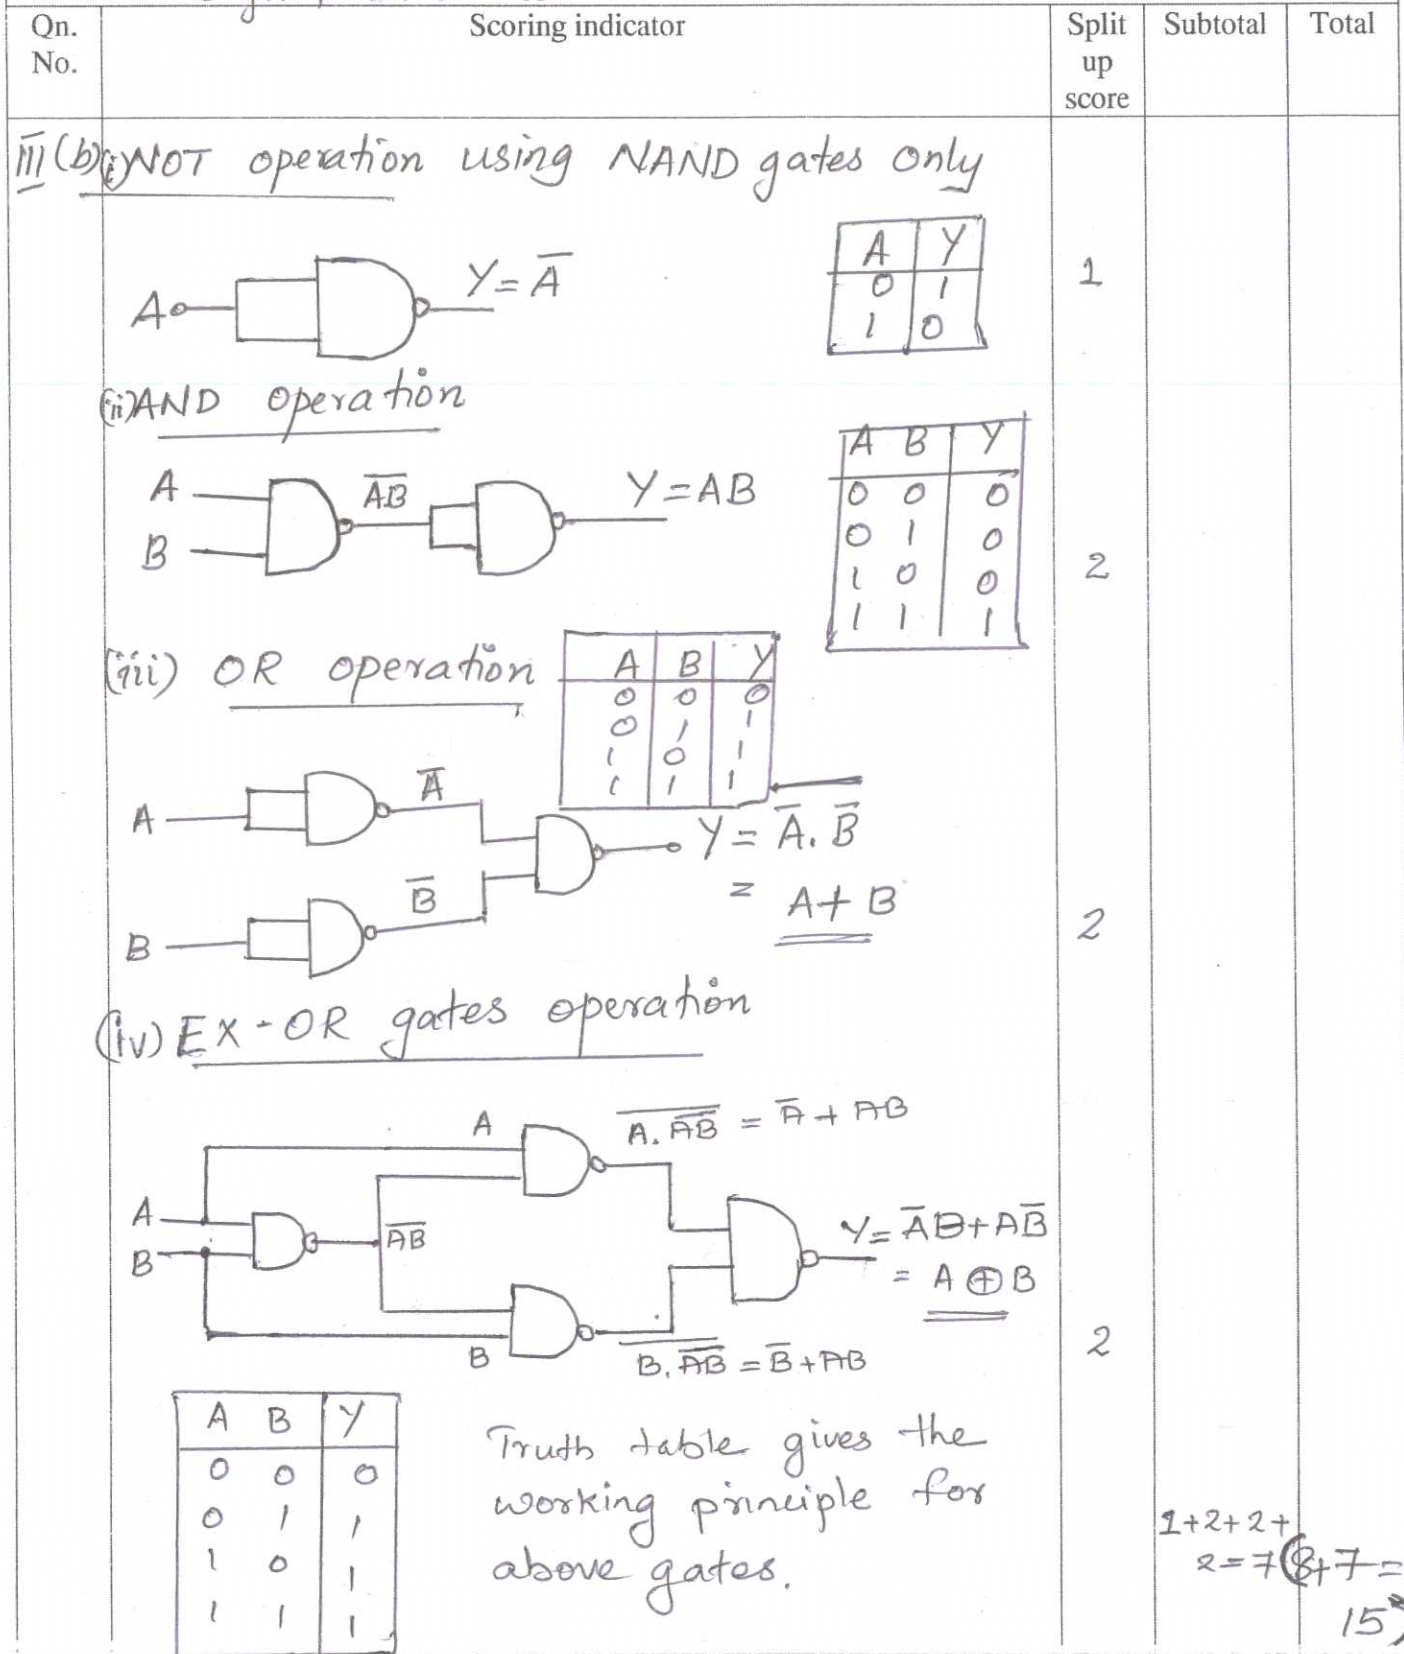 Qn. No. Scoring indicator Split up score Subtotal Total
III (b)(i) NOT operation using NAND gates only
A Y
0 1
1 0
A Y = A̅
1
(ii) AND operation
A B Y
0 0 0
0 1 0
1 0 0
1 1 1
A A̅B̅ Y = AB
B
2
(iii) OR operation
A B Y
0 0 0
0 1 1
1 0 1
1 1 1
A A̅
Y = A̅. B̅
= A + B
B B̅
2
(iv) EX-OR gates operation
A A. A̅B̅ = A̅ + AB
A
B
A̅B̅
Y = A̅B + AB̅
= A ⊕ B
B B. A̅B̅ = B̅ + AB
2
A B Y
0 0 0
0 1 1
1 0 1
1 1 1
Truth table gives the
working principle for
above gates.
1+2+2+
2=7 (8+7=
15)